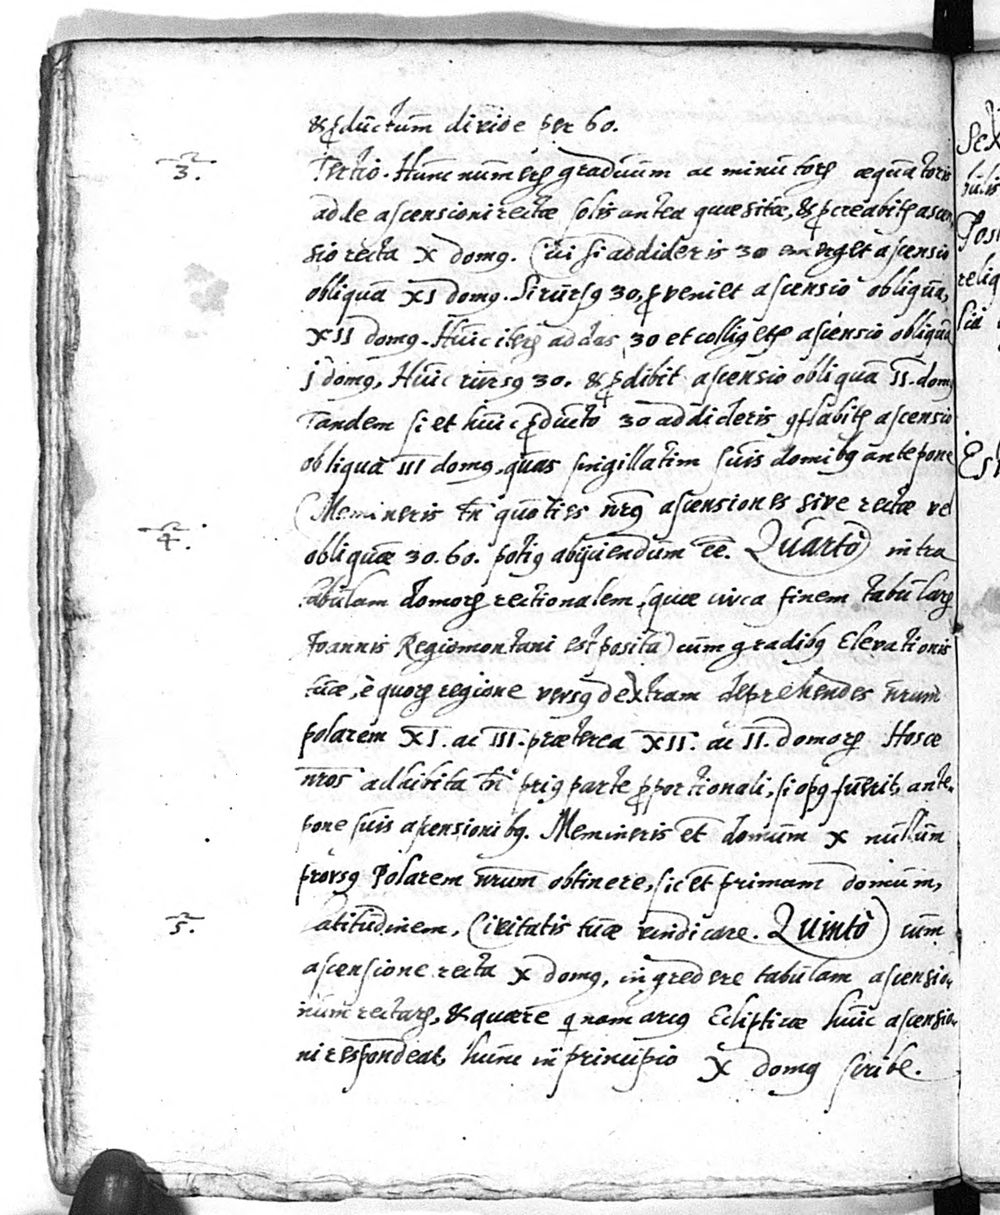 & ꝓductum divide per 60.
3.
Tertio. Hunc numerū graduum ac minutorꝝ æquatoris
adde ascensioni rectæ solis antea quæsitæ, & ꝓcreabitꝛ ascen-
sio recta X domꝰ. Cui si addideris 30 emerget ascensio
obliqua XI domꝰ. Si rursꝰ 30, ꝓveniet ascensio obliqua,
XII domꝰ. Huic iterū addas 30 et colligetꝛ ascensio obliqua
j domꝰ, Huic rursꝰ 30. & ꝓdibit ascensio obliqua II. domꝰ
Tandem si et huic ꝓducto 30 addideris ꝯflabitꝛ ascensio
obliqua III domꝰ, quas singillatim suis domibꝰ antepone
4.
(Memineris tn̄ quoties nrꝰ ascensiones sive rectæ vel
obliquæ 30. 60. potiꝰ abijciendum ēē. Quarto) intra
tabulam domorꝝ rectionalem, (quæ circa finem tabularꝝ
Joannis Regiomontani est posita) cum gradibꝰ Elevationis
tuæ, è quorꝝ regione versꝰ dextram deprehendes nr̄um
polarem XI. ac III. præterea XII. ac II. domorꝝ Hosce
nr̄os adhibita tn̄ priꝰ parte ꝓportionali, si opꝰ fuerit, ante-
pone suis ascensionibꝰ. Memineris et domum X nullum
prorsꝰ Polarem nr̄um obtinere, sic et primam domum,
5.
Latitudinem, Civitatis tuæ vindicare. Quinto) cum
ascensione recta X domꝰ, ingredere tabulam ascensio-
num rectarꝝ, & quære qnam arcꝰ Eclipticæ huic ascensio-
ni respondeat, hunc in principio X domꝰ scribe.